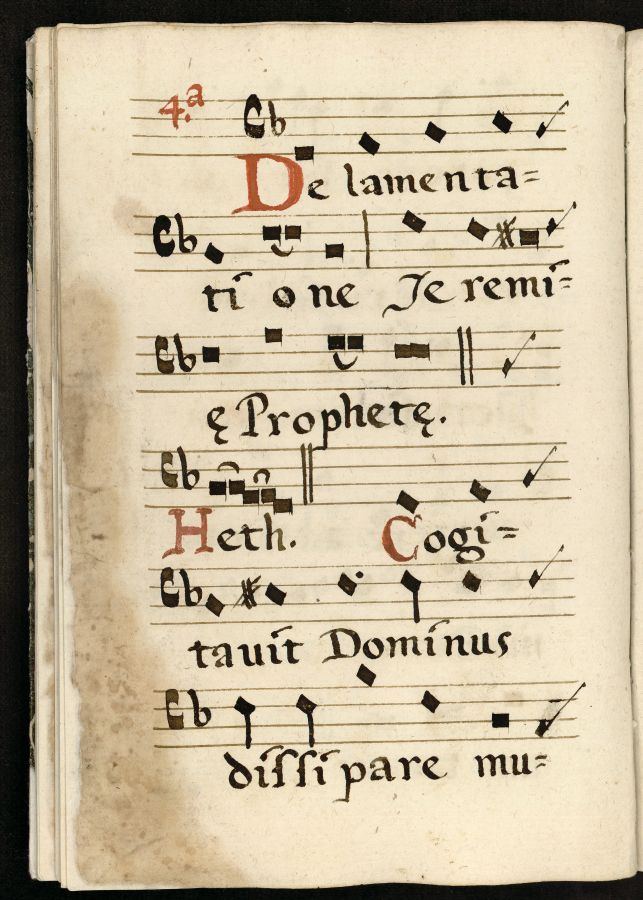 4.ª
De lamenta=
ti one Je remi=
ę Prophetę.
Heth. Cogi=
tauit Dominus
dissi pare mu=